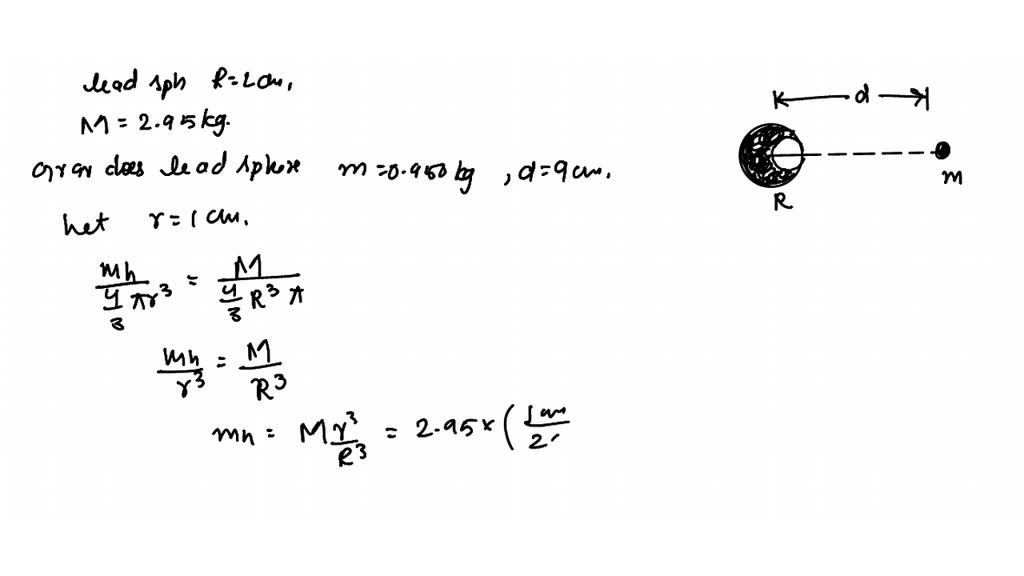 lead sph R=2cm,
M = 2.95kg.
does lead sphere m=0.950kg, d=9cm.
let r=1cm.
mh/(4/3 πr³) = M/(4/3 R³ π)
mh/r³ = M/R³
mh = M r³/R³ = 2.95 × (1cm/2
d
R
m